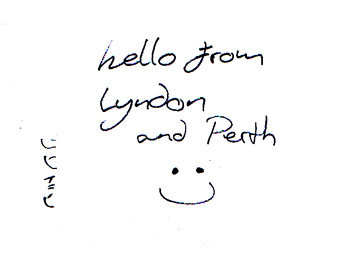 hello from
Lyndon
and Perth